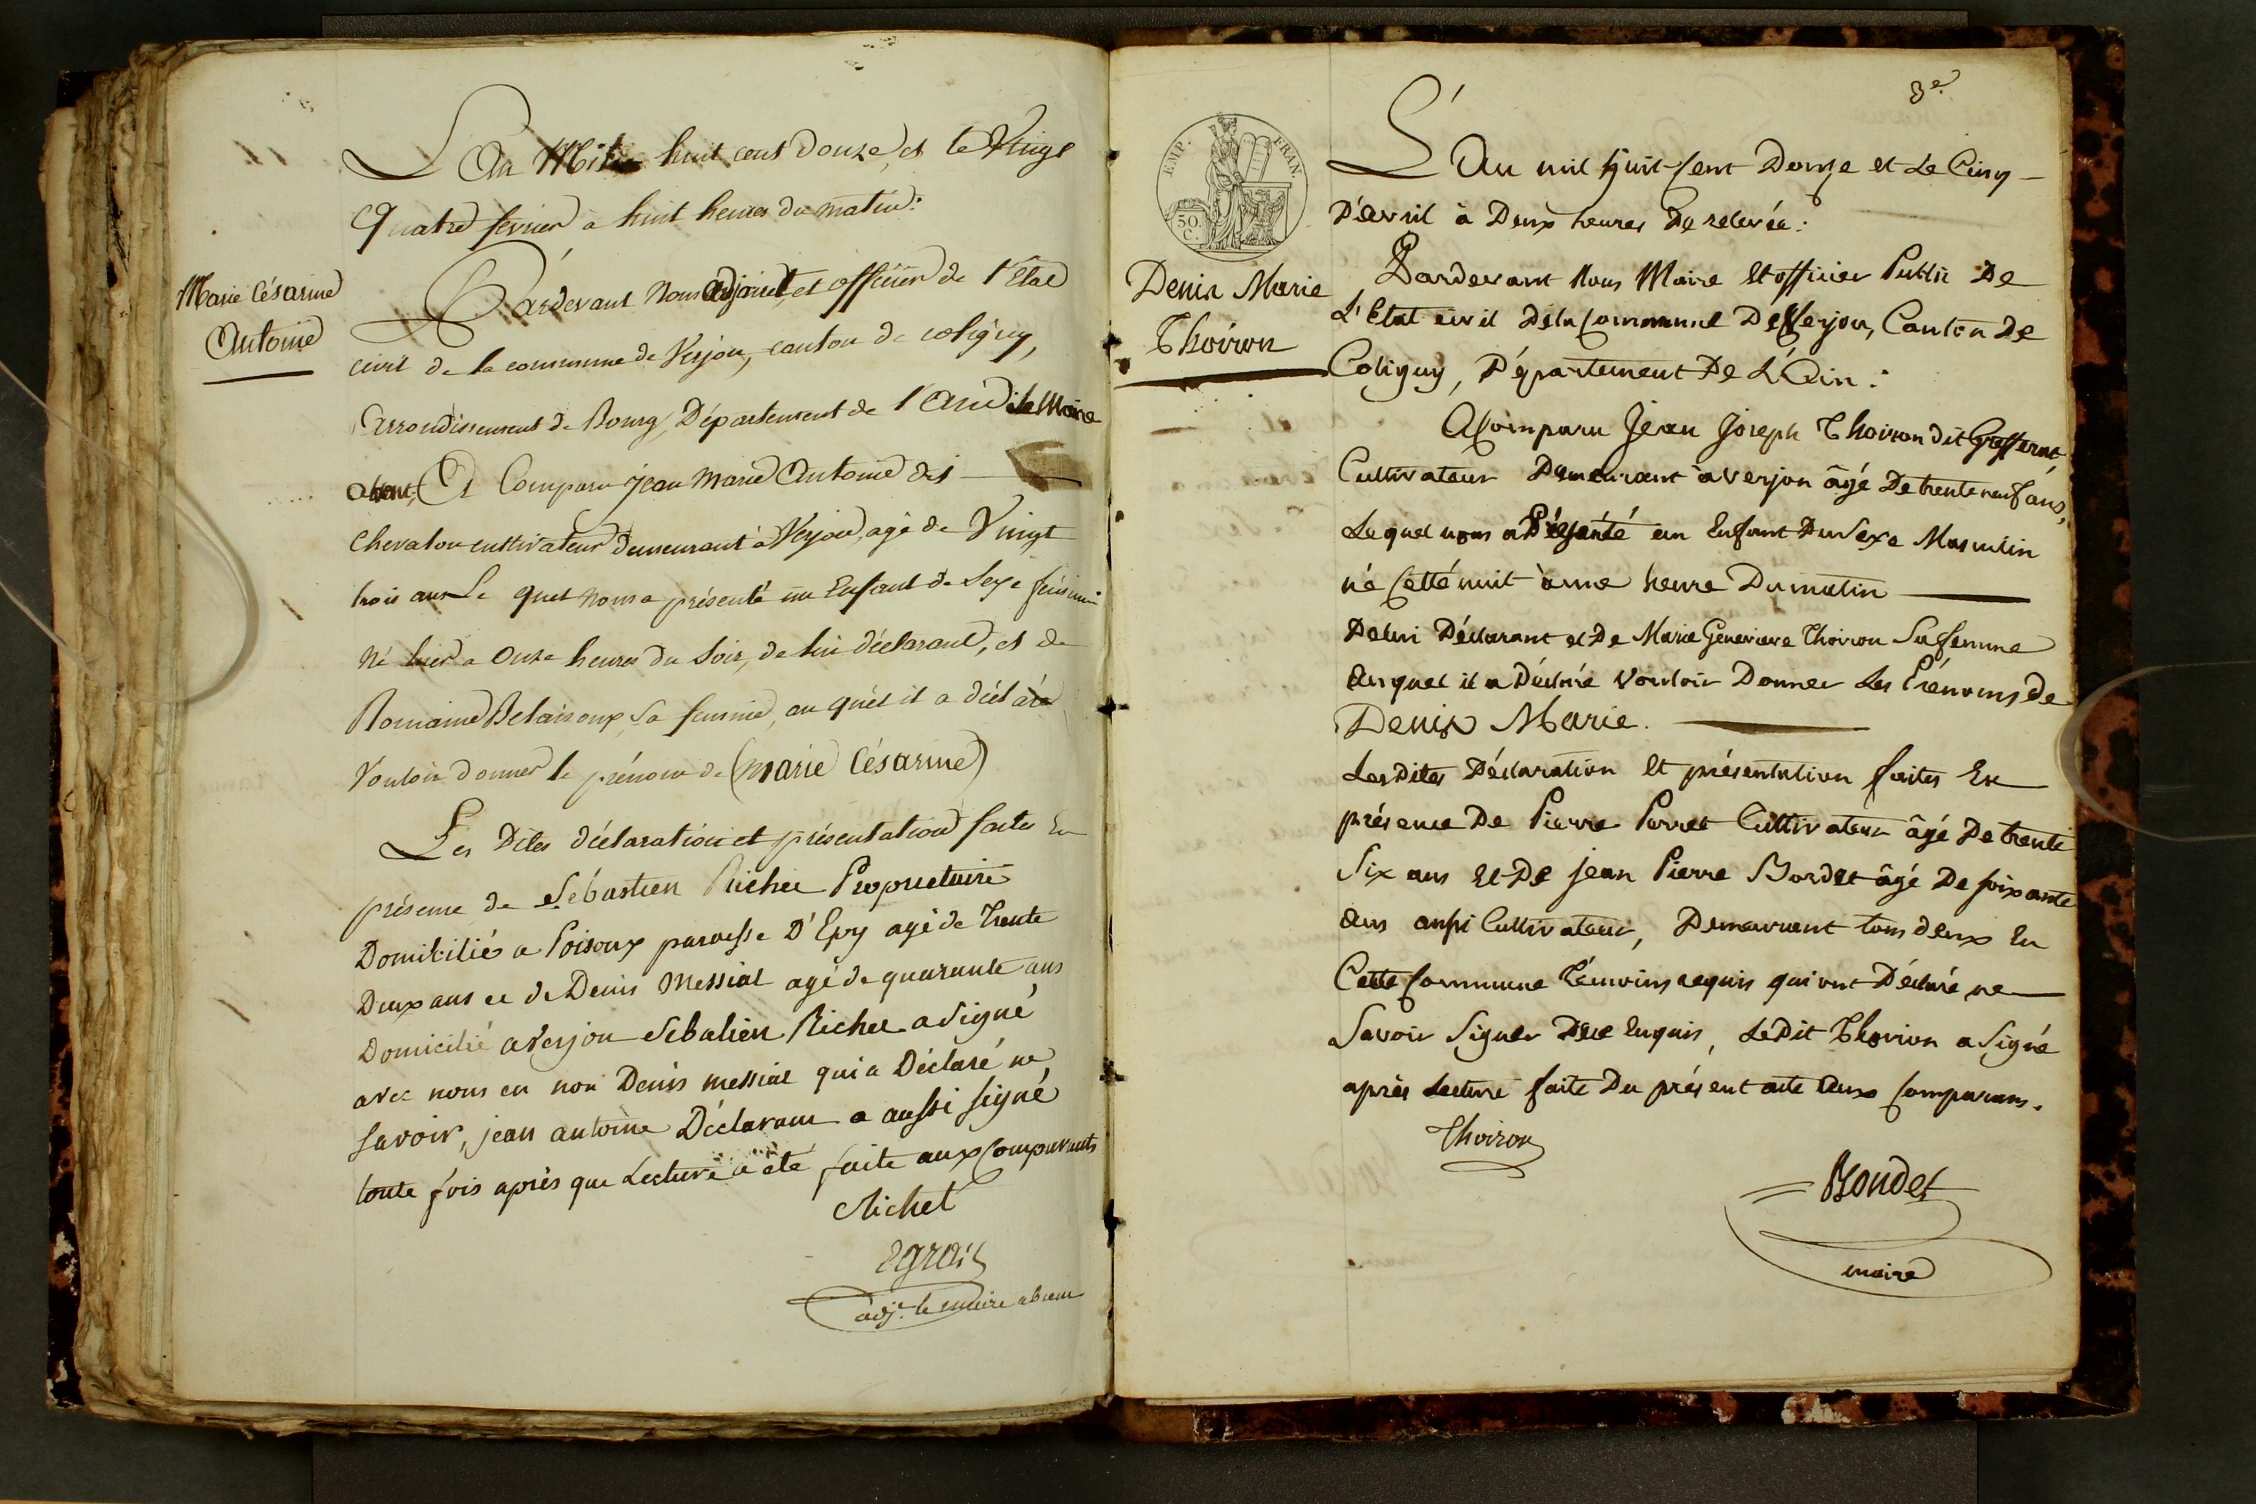 Marie Césarine
Antoine
L'An Mil huit cent douze, et le Vingt
quatre fevrier à huit heures du matin:
Pardevant Nous adjoint, et officier de l'Etat
civil de la commune de Verjon, canton de coligny,
Arrondissement de Bourg, Département de l'Ain, le Maire
absent, A Comparu jean marie Antoine dit
chevalon cultivateur demeurant à Verjon, agé de Vingt
trois ans Le quel nous a présenté un Enfant de Sexe féminin
Né hier a Onze heures du Soir, de lui déclarant, et de
Romaine Belaisoux, Sa femme, au quel il a déclaré
Vouloir donner le prénom de (marie Césarine)
Les Dites déclaration et présentation faites En
présence de Sébastien Richer Proprietaire
Domicilié a Poisoux paroisse D'Epy agé de Trente
Deux ans et de Denis Messiat agé de quarante ans
Domicilié a Verjon Sebatien Richer a Signé
avec nous en non Denis messiat qui a Déclaré ne
savoir, jean antoine Déclarant a aussi signé
toute fois après que Lecture a été faite aux Comparants
Richet
adjt. le maire absent
3e.
EMP. FRAN.
50.
C.
Denis Marie
Thoiron
L'An mil huit Cent Douze et Le Cinq
D'avril à Deux heures De relevée:
Pardevant Nous Maire Et officier Public De
L'Etat civil De la Commune De Verjon, Canton De
Coligny, Département De L'Ain:
A Comparu Jean Joseph Thoiron dit Grofferat,
Cultivateur Demeurant à Verjon âgé De trente neuf ans,
Lequel nous a Présenté un Enfant Du Sexe Masculin
né Cette nuit à une heure Du matin
De lui Déclarant et De Marie Genevieve Thoiron Sa femme
Auquel il a Déclaré Vouloir Donner Les Prénoms de
Denis Marie.
Les Dites Déclaration Et présentation faites En
présence De Pierre Perret Cultivateur âgé De trente
Six ans Et De Jean Pierre Bordet âgé De soixante
ans aussi Cultivateur, Demeurant tous deux En
Cette Commune Témoins requis qui ont Déclaré ne
Savoir Signer De ce Enquis, Le Dit Thoiron a Signé
après Lecture faite Du présent acte Aux Comparans.
Thoiron
Bondet
maire